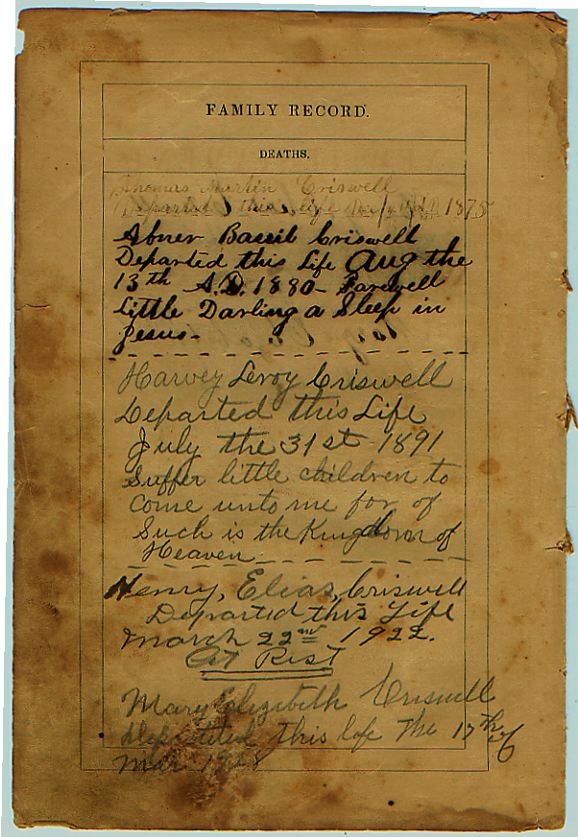 FAMILY RECORD.
DEATHS.
Thomas Martin Criswell
Departed this life 1875
Abner Bassil Criswell
Departed this Life Aug the
13th A.D. 1880 - Farewell
Little Darling a Sleep in
Jesus -
Harvey Leroy Criswell
Departed this Life
July the 31st 1891
Suffer little children to
Come unto me for of
Such is the Kingdom of
Heaven
Henry, Elias, Criswell
Departed this Life
March 22nd 1922.
At Rist
Mary Elizebith Criswell
departed this life the 17th of
Mar 1928